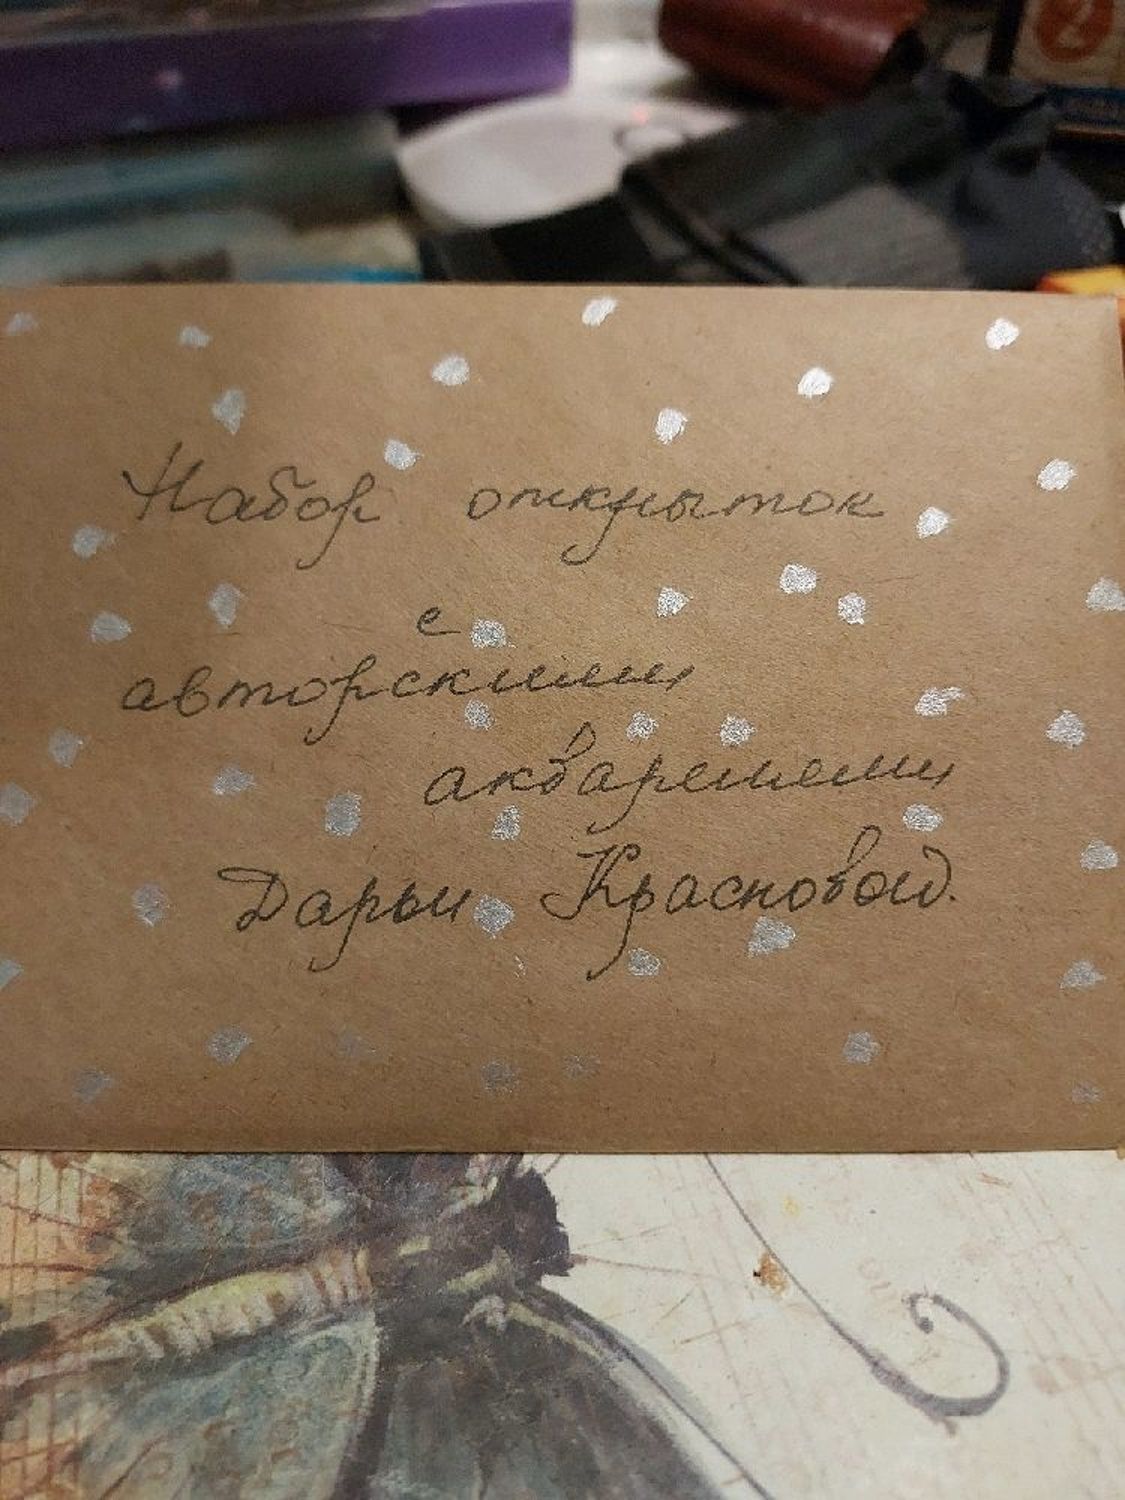 2
Набор открыток
с
авторскими
акварелями
Дарьи Красновой.